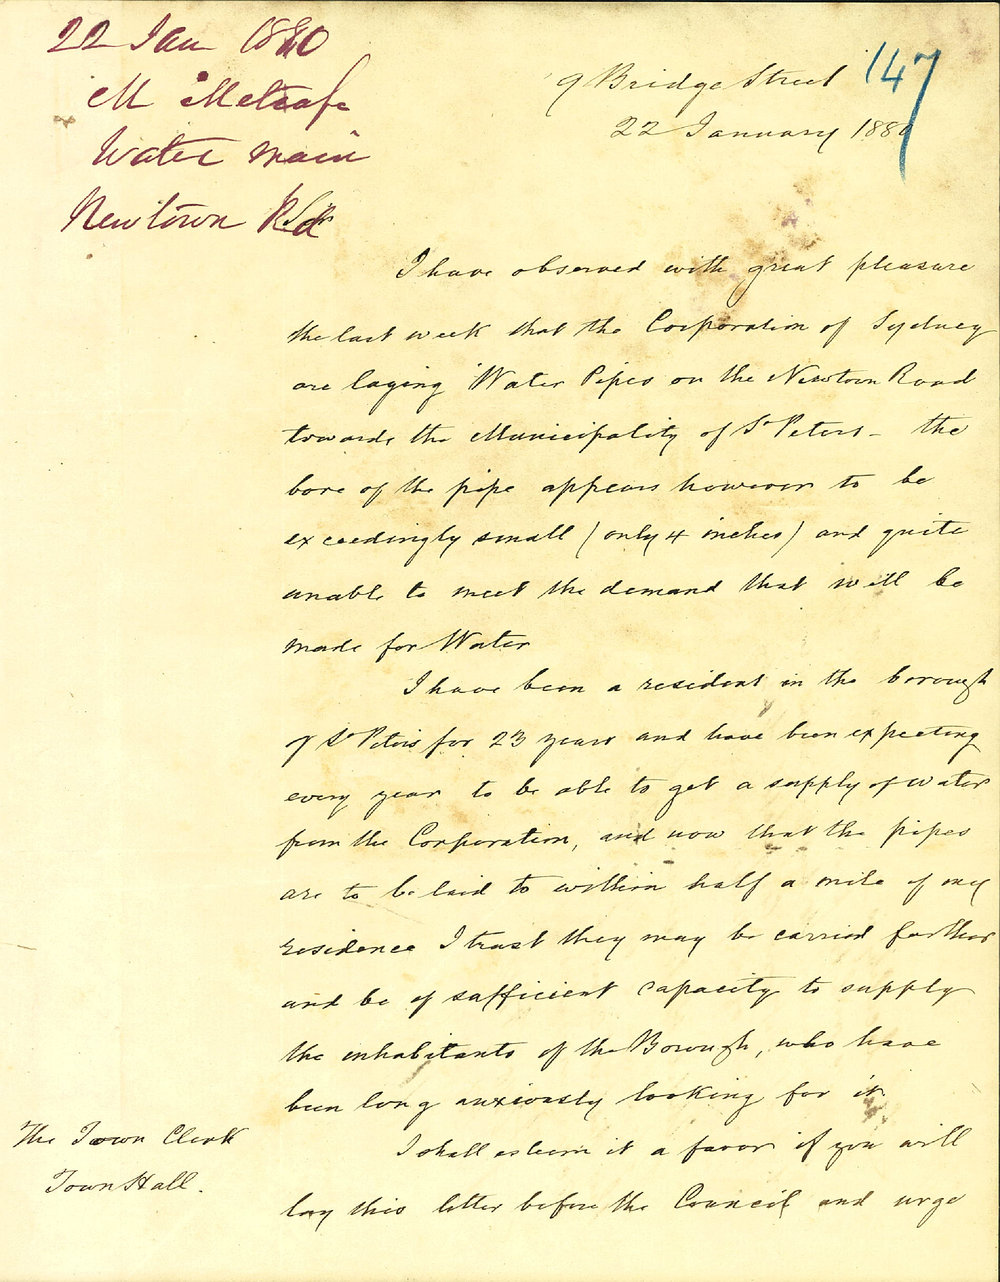 22 Jan 1880
M Metcafe
Water main
Newtown Rd
147
9 Bridge Street
22 January 1880
Sir
I have observed with great pleasure
the last week that the Corporation of Sydney
are laying Water Pipes on the Newtown Road
towards the Municipality of St Peters - the
bore of the pipe appears however to be
exceedingly small (only 4 inches) and quite
unable to meet the demand that will be
made for Water
I have been a resident in the borough
of St Peters for 23 years and have been expecting
every year to be able to get a supply of water
from the Corporation, and now that the pipes
are to be laid to within half a mile of my
residence I trust they may be carried farther
and be of sufficient capacity to supply
the inhabitants of the Borough, who have
been long anxiously looking for it
I shall esteem it a favor if you will
lay this letter before the Council and urge
The Town Clerk
Town Hall.